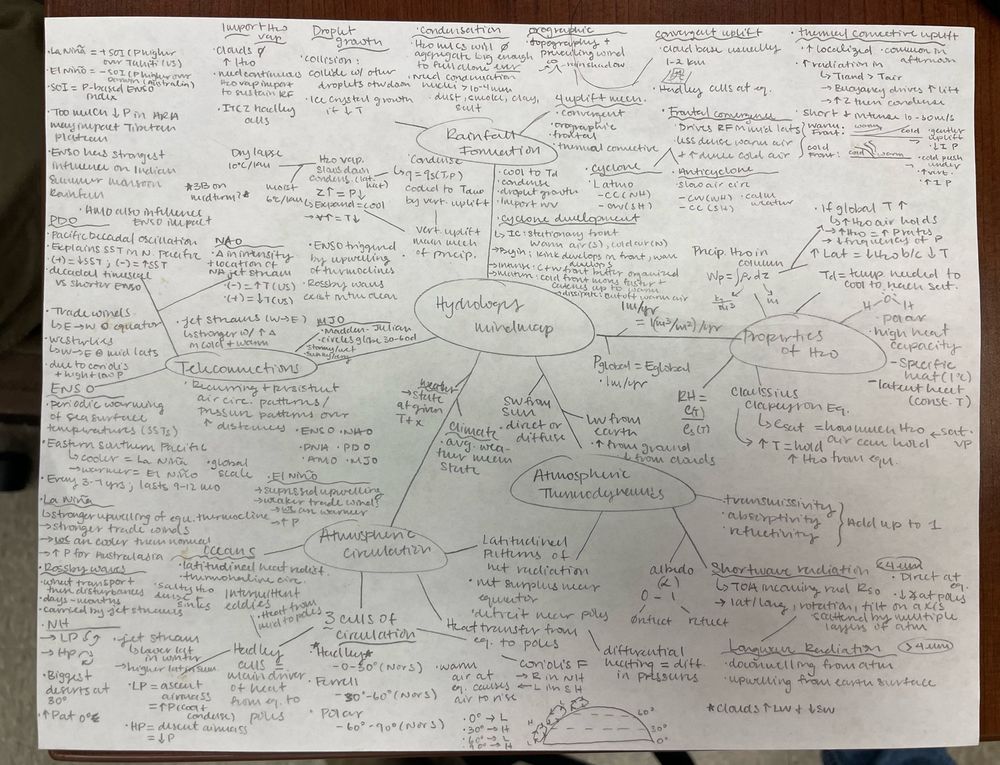 Import H2O vap
· clouds ∅
↑ H2O
· need continuous
H2O vap import
to sustain RF
· ITCZ Hadley
cells
Droplet growth
· collision:
collide w/ other
droplets
· Ice crystal growth
if ↓ T
· Condensation
H2O mlcs will ∅
aggregate big enough
to fall alone
· need condensation
nuclei > 10-4mm
dust, smoke, clay,
salt
orographic
topography +
prevailing wind
rainshadow
convergent uplift
· cloud base usually
1-2 km
· Hadley cells at eq.
· thermal convective uplift
· ↑ localized · common in
afternoon
· ↑ radiation in
→ Tland > Tair
→ Buoyancy drives ↑ lift
→ ↑ Z then condense
short + intense 10-50m/s
· La Niña = + SOI (P higher
over Tahiti (US)
· El Niño = - SOI (P higher over
Darwin (Australia)
· SOI = P-based ENSO
index
· Too much ↓ P in HRA
may impact Tibetan
plateau
· ENSO has strongest
influence on Indian
summer monsoon
rainfall
· AMO also influence
ENSO impact
Rainfall
Formation
4 uplift mech.
· convergent
· orographic
· frontal
· thermal convective
Frontal convergence
· Drives RF in mid lats
· less dense warm air
+ ↑ dense cold air
warm
front:
warm
cold
gentler
uplift
↓ I P
cold
front:
cold
warm
· cold push
under
↑ vert.
· ↑ I P
Dry lapse
10°C/km
moist
6°C/km
*3B on
midterm?*
H2O vap.
slows down
condens. (lat.
heat)
Z↑ = P↓
↳ Expand = cool
→ V↑ = T↓
Condense
↳ q = qs(T,P)
cooled to
by vert. uplift
vert. uplift
main mech
of precip.
· cool to Td
· condense
· droplet growth
· import wv
cyclone
· Lat mo
- CC (NH)
- CW (SH)
Anticyclone
· slow air circ
- CW (NH)
- CC (SH)
· calm
weather
cyclone development
↳ IC: stationary front
warm air (S), cold air (N)
→ Begin: kink develops in front, wave
develops
→ mature: cold front moves faster +
catches up to warm
→ dissipate: cutoff warm air
PDO
· Pacific Decadal Oscillation
· Explains SST in N. Pacific
· (+) = ↓SST; (-) = ↑SST
· decadal timescale
vs shorter ENSO
NAO
· Δ in intensity
+ location of
NA jet stream
(-) = ↑T (US)
(+) = ↓T (US)
· ENSO triggered
by upwelling
of thermoclines
· Rossby waves
exist in thermocline
· Trade winds
↳ E → W @ equator
· westerlies
↳ W → E @ mid lats
· due to coriolis
+ high + low P
· jet streams (W→E)
↳ stronger w/ ↑ Δ
in cold + warm
MJO
· Madden-Julian
· circles globe 30-60d
stormy/wet
sunny/dry
Teleconnections
· Recurring + persistent
air circ. patterns /
pressure patterns over
↑ distances
· ENSO · NAO
· PNA · PDO
· AMO · MJO
Hydrology
mindmap
1m/yr
= 1(m3/m2)/yr
Pglobal = Eglobal
· 1m/yr
Precip. H2O in
column
Wp = ∫ρv dz
kg/m3
m
· If global T ↑
↳ ↑ H2O air holds
→ ↑ H2O = ↑ P rates
→ ↓ frequency of P
↑ Lat = ↓ H2O b/c ↓ T
Td = temp. needed to
cool to reach sat.
H
O
H
· polar
· high heat
capacity
- specific
heat (1°C)
- latent heat
(const. T)
Properties
of H2O
RH =
e(T)
es(T)
Clausius
Clapeyron Eq.
↳ esat = how much H2O
air can hold
sat.
vp
↑ T = hold
↑ H2O from equ.
ENSO
· periodic warming
of sea surface
temperatures (SSTs)
· Eastern Southern Pacific
↳ cooler = La Niña
→ warmer = El Niño
· global
scale
· Every 3-7 yrs; lasts 9-12 mo
weather
→ state
at given
T + x
Climate
· avg. wea-
ther mean
state
SW from
sun
· direct or
diffuse
LW from
earth
· ↑ from ground
↓ from clouds
Atmospheric
Thermodynamics
· transmissivity
· absorptivity
· reflectivity
Add up to 1
· La Niña
↳ stronger upwelling of equ. thermocline
→ stronger trade winds
→ an cooler then normal
→ ↑ P for Australasia
· El Niño
→ supressed upwelling
→ weaker trade winds
→ an warmer
→ ↑ P
· Rossby waves
· wheat transport
then disturbances
· days-months
· carried by jet streams
Oceans
· latitudinal heat redist.
· thermohaline circ.
· salty H2O
dense +
sinks
Intermittent
eddies
· Heat from
mid to poles
Atmospheric
circulation
Latitudinal
Patterns of
net radiation
· net surplus near
equator
· deficit near poles
albido
(α)
0 - 1
reflect
Shortwave radiation
<4um
→ TOA incoming rad Rso
→ lat/long, rotation, tilt on axis
scattered by multiple
layers of atm
· Direct at
eq.
· ↓ at poles
Longwave Radiation
>4um
· downwelling from atm
· upwelling from earth surface
*Clouds ↑ LW + ↓ SW
· NH
→ LP
→ HP
· Biggest
deserts at
30°
· ↑ P at 0°
· jet stream
↳ lower lat
in winter
→ higher lat in sum.
LP = ascent
airmass
= ↑ P (cool +
condense)
· HP = descent airmass
= ↓ P
Hadley
cells =
main driver
of heat
from eq. to
poles
3 cells of
circulation
*Hadley*
- 0-30° (N or S)
· Ferrell
30°-60° (N or S)
· Polar
- 60°-90° (N or S)
Heat transfer from
eq. to poles
· warm
air at
eq. causes
air to rise
· coriolis F
→ R in NH
← L in SH
differential
heating = diff.
in pressures
· 0° → L
· 30° → H
· 60° → L
· 90° → H
60°
30°
0°